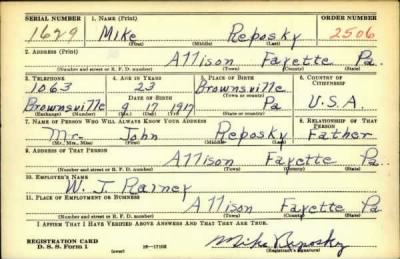 SERIAL NUMBER 1. NAME (Print) ORDER NUMBER
1629 Mike Reposky 2506
(First) (Middle) (Last)
2. ADDRESS (Print)
Allison Fayette Pa.
(Number and street or R. F. D. number) (Town) (County) (State)
3. TELEPHONE 4. AGE IN YEARS 5. PLACE OF BIRTH 6. COUNTRY OF CITIZENSHIP
1063 23 Brownsville
DATE OF BIRTH (Town or county)
Brownsville 9 17 1917 Pa U.S.A.
(Exchange) (Mo.) (Day) (Yr.) (State or country)
7. NAME OF PERSON WHO WILL ALWAYS KNOW YOUR ADDRESS 8. RELATIONSHIP OF THAT PERSON
Mr. John Reposky Father
(Mr., Mrs., Miss) (First) (Middle) (Last)
9. ADDRESS OF THAT PERSON
Allison Fayette Pa.
(Number and street or R. F. D. number) (Town) (County) (State)
10. EMPLOYER'S NAME
W. J. Rainey
11. PLACE OF EMPLOYMENT OR BUSINESS
Allison Fayette Pa
(Number and street or R. F. D. number) (Town) (County) (State)
I AFFIRM THAT I HAVE VERIFIED ABOVE ANSWERS AND THAT THEY ARE TRUE.
REGISTRATION CARD
D. S. S. Form 1 (over) Mike Reposky
(Registrant's signature)